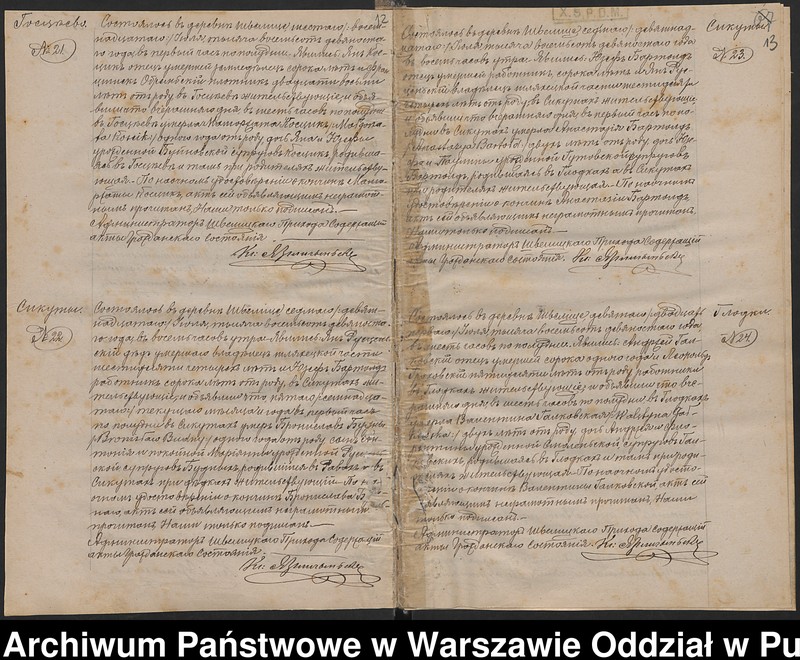 12
Госцѣево.
№ 21.
Состоялось въ деревнѣ Швелице шестаго / восем-
надцатаго / Іюля тысяча восемьсотъ девяносто-
го года въ первый часъ по полудни. Явились Янъ Ко-
сцикъ отецъ умершей земледѣлецъ сорока лѣтъ и Фран-
плотникъ двадцати восьми
лѣтъ отъ роду въ Госцѣевѣ жительствующіе, и объя-
вили что вчерашняго дня въ шесть часовъ по полудни
въ Госцѣевѣ умерла
одного года отъ роду, дочь Яна и Юзефы
урожденной супруговъ Косцикъ, родивша-
яся въ Госцѣевѣ и тамъ при родителяхъ жительству-
ющая. По наочномъ удостовѣреніи о кончинѣ Мал-
гржаты Косцикъ, актъ сей объявляющимъ неграмот-
нымъ прочитанъ, Нами только подписанъ.
Администраторъ Швелицкаго Прихода Содержащій
акты Гражданскаго состоянія.
Сикуты.
№ 22
Состоялось въ деревнѣ Швелице седмаго / девят-
надцатаго / Іюля тысяча восемьсотъ девяносто-
го года, въ восемь часовъ утра. Явились Янъ
дѣдъ умершаго владѣлецъ шляхецкой части
шестидесяти четырехъ лѣтъ и Юзефъ Бартолдъ
работникъ сорока лѣтъ отъ роду, въ Сикутахъ жи-
тельствующіе, и объявили что пятаго / семнадца-
таго / текущаго мѣсяца и года въ первый часъ
по полудни въ Сикутахъ умеръ Брониславъ
одного года отъ роду, сынъ Ан-
тонія и покойной Маріанны урожденной
супруговъ родившійся въ и въ
Сикутахъ при дѣдкахъ жительствующій. По на-
очномъ удостовѣреніи о кончинѣ Бронислава
актъ сей объявляющимъ неграмотнымъ
прочитанъ Нами только подписанъ.
Администраторъ Швелицкаго Прихода Содержащій
акты Гражданскаго состоянія.
X.S.P.D.M.
13
Сикуты
№ 23.
Состоялось въ деревнѣ Швелице седмаго / девятнад-
цатаго / Іюля тысяча восемьсотъ девяностаго года
въ восемь часовъ утра. Явились Юзефъ Бартолдъ
отецъ умершей работникъ, сорока лѣтъ и Янъ
владѣлецъ шляхецкой части шестидесяти
четырехъ лѣтъ отъ роду въ Сикутахъ жительствующіе,
и объявили что вчерашняго дня въ первый часъ по по-
лудни въ Сикутахъ умерла Анастазія Бартолдъ
двухъ лѣтъ отъ роду, дочь Юзе-
фа и Паулины урожденной Гутовской супруговъ
Бартолдъ, родившаяся въ Глодкахъ а въ Сикутахъ
при родителяхъ жительствующая. По наочномъ
удостовѣреніи о кончинѣ Анастазіи Бартолдъ
актъ сей объявляющимъ неграмотнымъ прочитанъ,
Нами только подписанъ.
Администраторъ Швелицкаго Прихода Содержащій
акты Гражданскаго Состоянія.
Глодки.
№ 24
Состоялось въ деревнѣ Швелице девятаго / двадцать
перваго / Іюля тысяча восемьсотъ девяностаго года,
въ шесть часовъ по полудни. Явились Андрей Гал-
ковскій отецъ умершей сорока одного года и Леопольдъ
пятидесяти лѣтъ отъ роду работники
въ Глодкахъ жительствующіе, и объявили что вче-
рашняго дня въ шесть часовъ по полудни въ Глодкахъ
умерла Валентина Галковская
двухъ лѣтъ отъ роду, дочь Андрея и
урожденной супруговъ Гал-
ковскихъ, родившаяся въ Глодкахъ и тамъ при роди-
теляхъ жительствующая. По наочномъ удосто-
вѣреніи о кончинѣ Валентины Галковской, актъ сей
объявляющимъ неграмотнымъ прочитанъ, Нами
только подписанъ.
Администраторъ Швелицкаго Прихода Содержащій
акты Гражданскаго состоянія.
Archiwum Państwowe w Warszawie Oddział w Pu